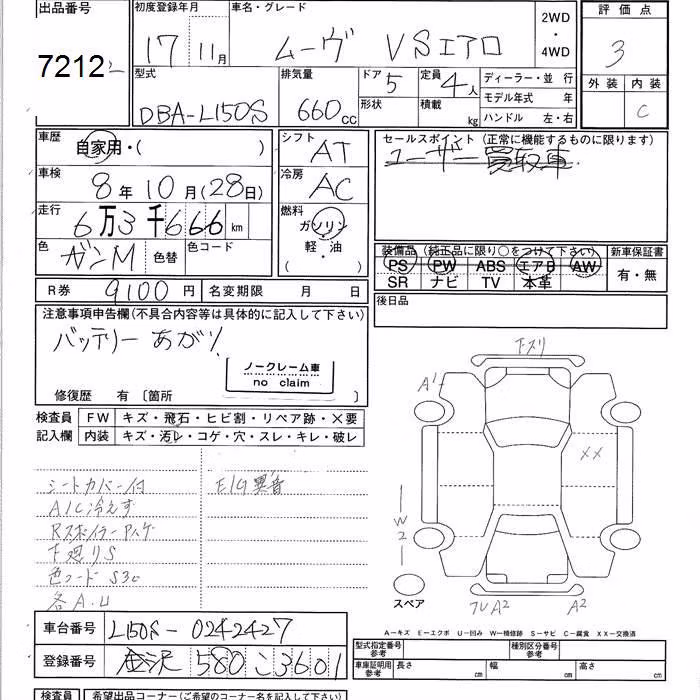 出品番号 初度登録年月 車名・グレード 2WD ・ 4WD 評価点
7212 17 11月 ムーヴ VSエアロ 3
型式 排気量 ドア 定員 ディーラー・並 行 外装 内装
DBA-L150S 660cc 5 4人 モデル年式 年 C
形状 積載 kg ハンドル 左・右
車歴 自家用・( ) シフト AT セールスポイント (正常に機能するものに限ります)
車検 8年10月(28日) 冷房 AC ユーザー買取車
走行 6万3千666km 燃料 ガソリン・軽・油 ( )
色 ガンM 色替 色コード 装備品 (純正品に限り○をつけて下さい) 新車保証書
PS PW ABS エアB AW 有・無
SR ナビ TV 本革
R券 9100円 名変期限 月 日 後日品
注意事項申告欄(不具合内容等は具体的に記入して下さい)
バッテリーあがり
ノークレーム車
no claim
修復歴 有 〔箇所
検査員 FW キズ・飛石・ヒビ割・リペア跡・×要
記入欄 内装 キズ・汚レ・コゲ・穴・スレ・キレ・破レ
シートカバー付 E/G異音
A/C冷えず
Rスポイラーハゲ
下廻りS
色コード S30
各A.U
下スリ
A1
XX
W2
スペア
A2
A2
車台番号 L150S-0242427
登録番号 金沢 580 こ 3601
A-キズ E-エクボ U-凹み W-補修跡 S-サビ C-腐食 XX-交換済
型式指定番号 参考 種別区分番号 参考
車庫証明用 参考 長さ cm 幅 cm 高さ cm
検査員 希望出品コーナー(ご希望のコーナー名を記入して下さい)